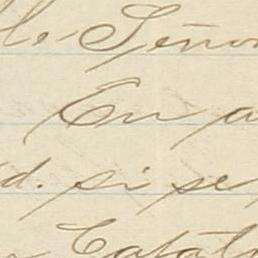 ble Señor
En a
d. si se
Catal